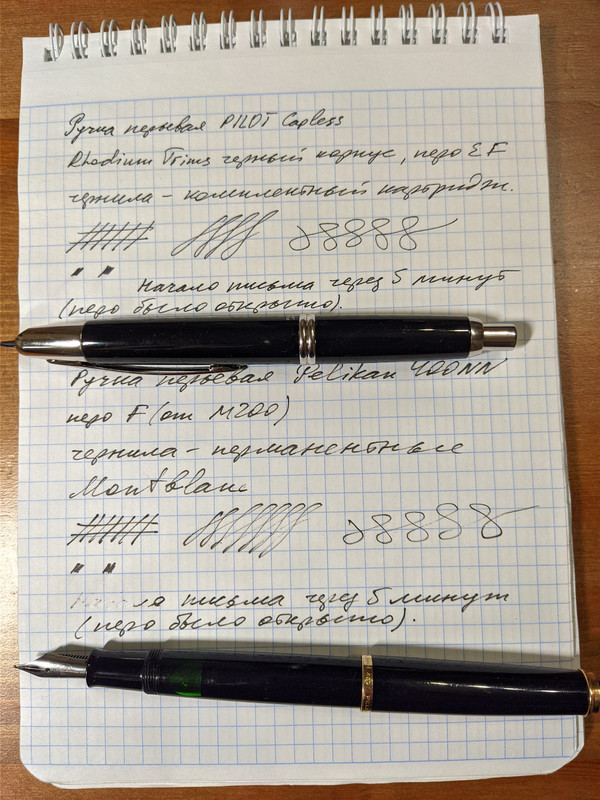 Ручка перьевая PILOT Capless
Rhodium Trims черный корпус, перо EF
чернила - комплектный картридж.
" "
Начало письма через 5 минут
(перо было открыто).
Ручка перьевая Pelikan 400NN
перо F (от M200)
чернила - перманентные
Montblanc
" "
Начало письма через 5 минут
(перо было открыто).